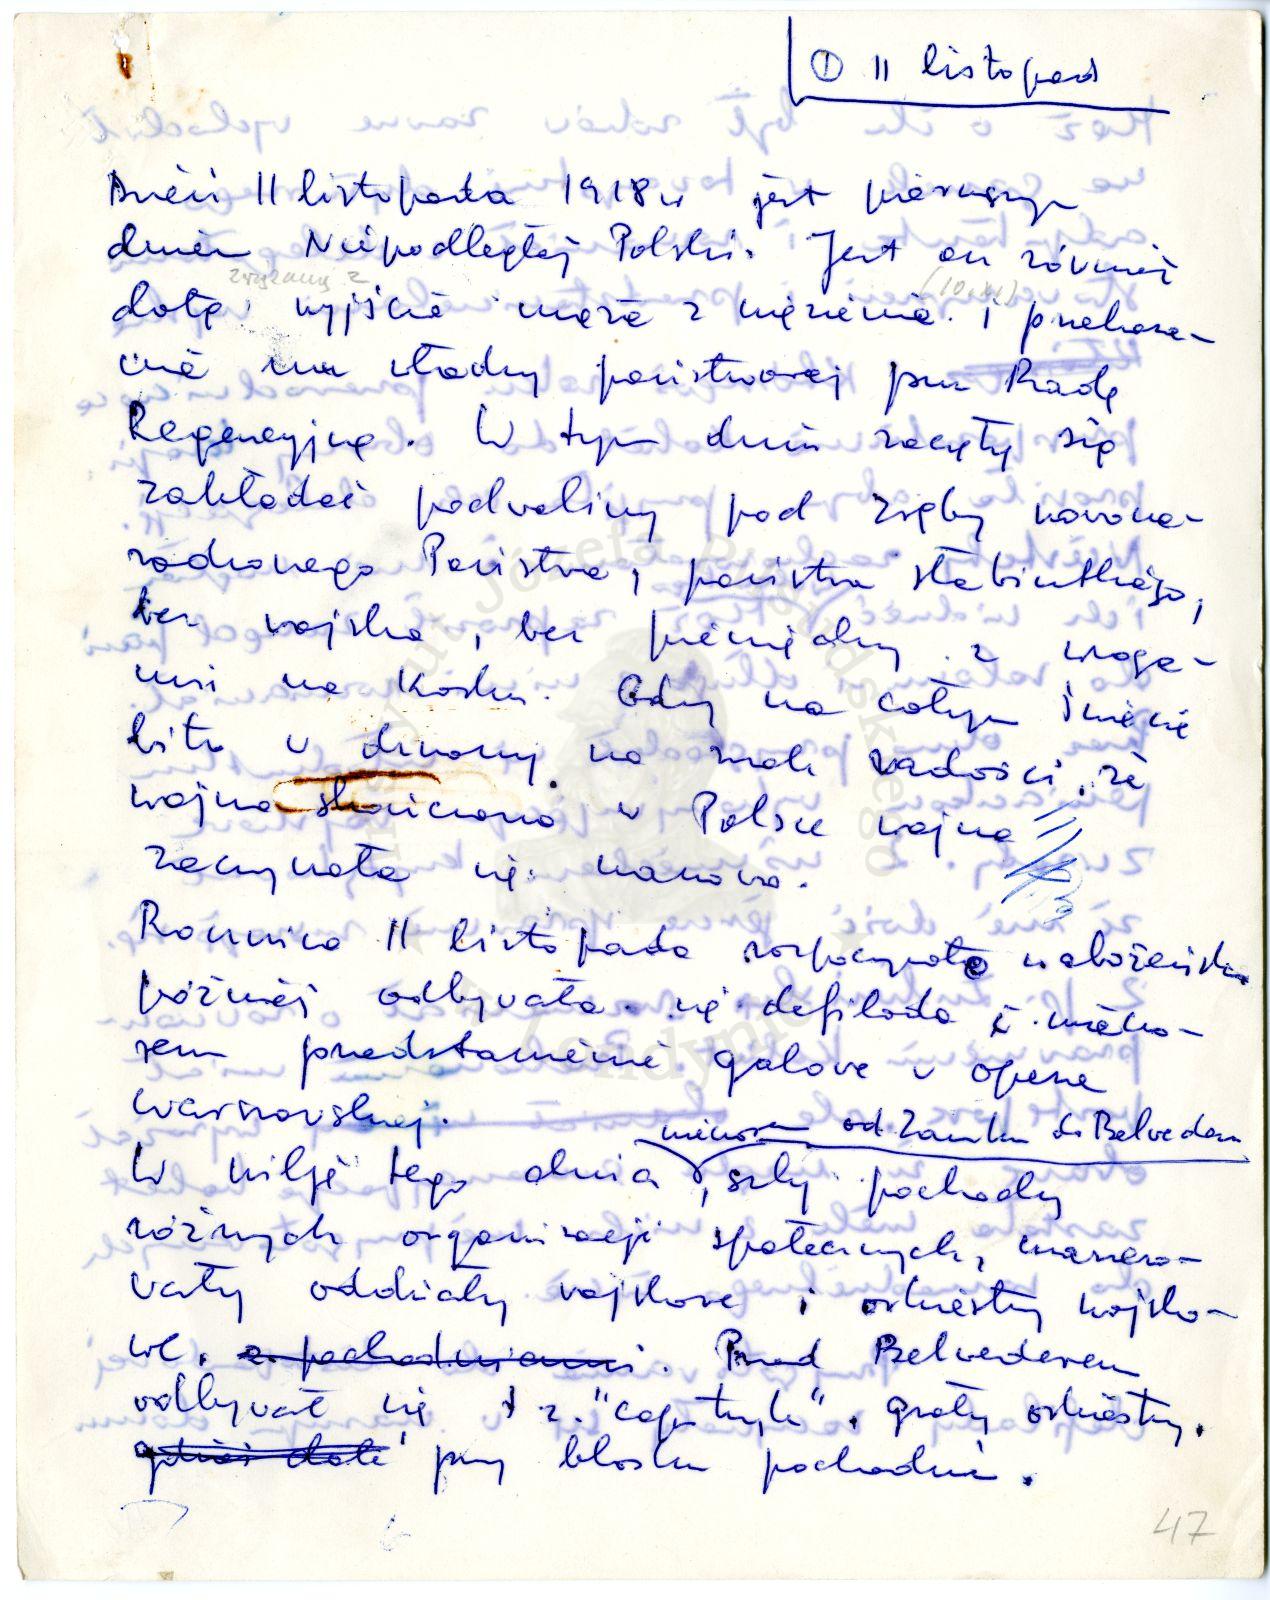 ① 11 listopad
Dzień 11 listopada 1918 r jest pierwszym
dniem Niepodległej Polski. Jest on również
związany z (10.XI)
datą wyjścia męża z więzienia i przekaza-
nia mu władzy państwowej przez Radę
Regencyjną. W tym dniu zaczęły się
zakładać podwaliny pod zręby nowona-
rodzonego Państwa, państwa słabiutkiego,
bez wojska, bez pieniędzy z wroga-
mi na karku. Gdy na całym świecie
bito w dzwony na znak radości, że
wojna skończona w Polsce wojna
zaczynała się nanowo.
Rocznica 11 listopada rozpoczynała nabożeństwem
później odbywała się defilada i wieczo-
rem przedstawienie galowe w operze
warszawskiej.
wieczorem od Zamku do Belwederu
W wilję tego dnia, szły pochody
różnych organizacji społecznych, masero-
wały oddziały wojskowe i orkiestry wojsko-
we. z pochodniami. Przed Belwederem
odbywał się t.z. "capstrzyk". grały orkiestry.
przy blasku pochodni.
47
Instytut Józefa Piłsudskiego
w Londynie